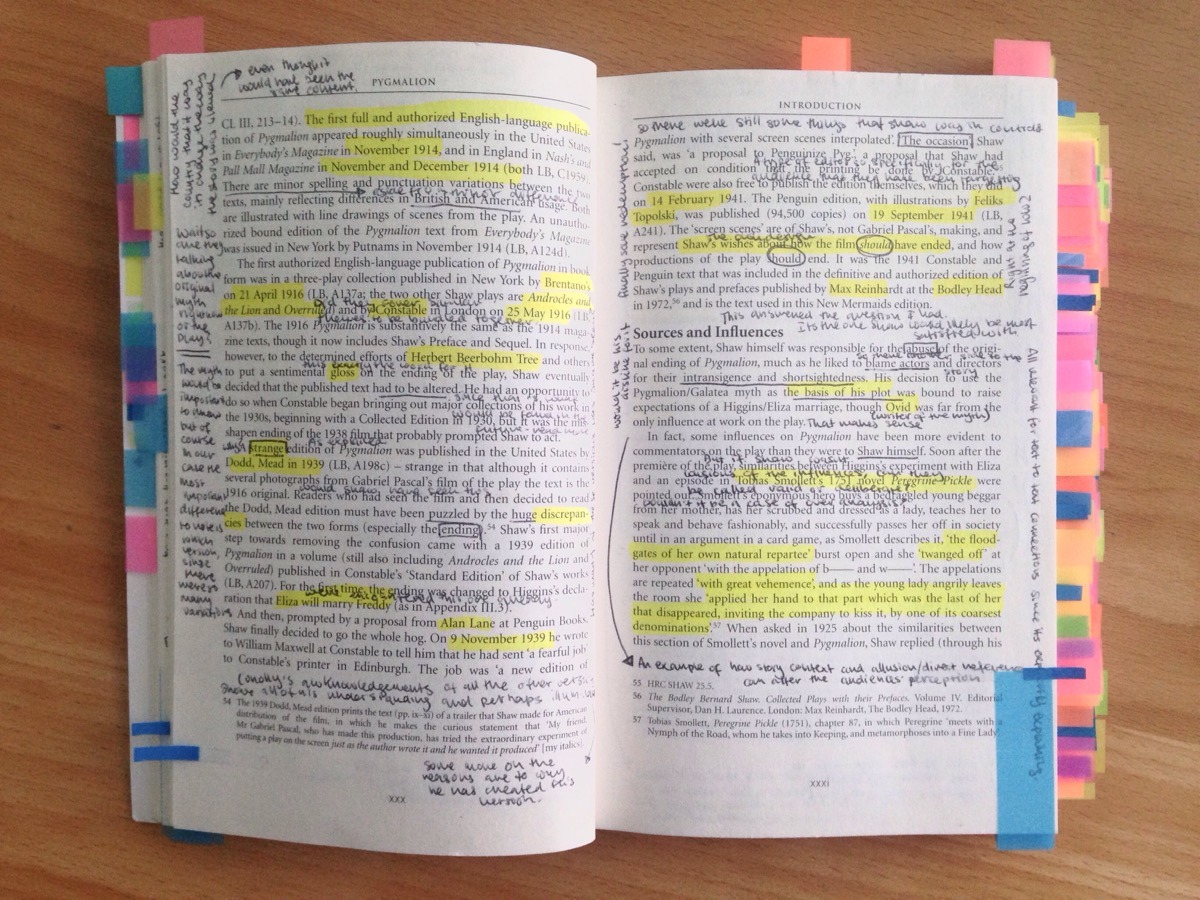 even though it
would have seen the
same content.
PYGMALION
CL III, 213–14). The first full and authorized English-language publica-
tion of Pygmalion appeared roughly simultaneously in the United States
in Everybody's Magazine in November 1914, and in England in Nash's and
Pall Mall Magazine in November and December 1914 (both LB, C1959).
There are minor spelling and punctuation variations between the two
texts, mainly reflecting differences in British and American usage. Both
are illustrated with line drawings of scenes from the play. An unautho-
rized bound edition of the Pygmalion text from Everybody's Magazine
was issued in New York by Putnams in November 1914 (LB, A124d).
The first authorized English-language publication of Pygmalion in book
form was in a three-play collection published in New York by Brentano's
on 21 April 1916 (LB, A137a; the two other Shaw plays are Androcles and
the Lion and Overruled) and by Constable in London on 25 May 1916 (LB
A137b). The 1916 Pygmalion is substantively the same as the 1914 maga-
zine texts, though it now includes Shaw's Preface and Sequel. In response,
however, to the determined efforts of Herbert Beerbohm Tree and others
to put a sentimental gloss on the ending of the play, Shaw eventually
decided that the published text had to be altered. He had an opportunity
to do so when Constable began bringing out major collections of his work in
the 1930s, beginning with a Collected Edition in 1930, but it was the mis-
shapen ending of the 1938 film that probably prompted Shaw to act.
strange edition of Pygmalion was published in the United States by
Dodd, Mead in 1939 (LB, A198c) – strange in that although it contains
several photographs from Gabriel Pascal's film of the play the text is the
1916 original. Readers who had seen the film and then decided to read
the Dodd, Mead edition must have been puzzled by the huge discrepan-
cies between the two forms (especially the ending).54 Shaw's first major
step towards removing the confusion came with a 1939 edition of
Pygmalion in a volume (still also including Androcles and the Lion and
Overruled) published in Constable's 'Standard Edition' of Shaw's works
(LB, A207). For the first time, the ending was changed to Higgins's decla-
ration that Eliza will marry Freddy (as in Appendix III.3).
And then, prompted by a proposal from Alan Lane at Penguin Books,
Shaw finally decided to go the whole hog. On 9 November 1939 he wrote
to William Maxwell at Constable to tell him that he had sent 'a fearful job'
to Constable's printer in Edinburgh. The job was 'a new edition of
acknowledgements of all the other
understanding and perhaps
54 The 1939 Dodd, Mead edition prints the text (pp. ix–xi) of a trailer that Shaw made for American
distribution of the film, in which he makes the curious statement that 'My friend,
Mr Gabriel Pascal, who has made this production, has tried the extraordinary experiment of
putting a play on the screen just as the author wrote it and he wanted it produced' [my italics].
some more on the
reasons are to why
he has created this
version.
xxx
waitso
are they
talking
about the
original
myth
or the
play?
The myth
would be
important
to know
but of
course
in our
case the
most
important
difference
to note is
which
version,
since
there
were so
many
variations
INTRODUCTION
so there were still some things that shaw was in control
Pygmalion with several screen scenes interpolated'. The occasion, Shaw
said, was 'a proposal to Penguinize Pyg': a proposal that Shaw had
accepted on condition that the printing be done by Constable.
Constable were also free to publish the edition themselves, which they did
on 14 February 1941. The Penguin edition, with illustrations by Feliks
Topolski, was published (94,500 copies) on 19 September 1941 (LB,
A241). The 'screen scenes' are of Shaw's, not Gabriel Pascal's, making, and
represent Shaw's wishes about how the film should have ended, and how
productions of the play should end. It was the 1941 Constable and
Penguin text that was included in the definitive and authorized edition of
Shaw's plays and prefaces published by Max Reinhardt at the Bodley Head
in 1972,56 and is the text used in this New Mermaids edition.
This answered the question I had.
Its the one Shaw would likely be most
satisfied with
Sources and Influences
To some extent, Shaw himself was responsible for the abuse of the origi-
nal ending of Pygmalion, much as he liked to blame actors and directors
for their intransigence and shortsightedness. His decision to use the
Pygmalion/Galatea myth as the basis of his plot was bound to raise
expectations of a Higgins/Eliza marriage, though Ovid was far from the
only influence at work on the play. That makes sense (writer of the myth)
In fact, some influences on Pygmalion have been more evident to
commentators on the play than they were to Shaw himself. Soon after the
premiere of the play, similarities between Higgins's experiment with Eliza
and an episode in Tobias Smollett's 1751 novel Peregrine Pickle were
pointed out. Smollett's eponymous hero buys a bedraggled young beggar
from her mother, has her scrubbed and dressed as a lady, teaches her to
speak and behave fashionably, and successfully passes her off in society
until in an argument in a card game, as Smollett describes it, 'the flood-
gates of her own natural repartee' burst open and she 'twanged off' at
her opponent 'with the appelation of b—— and w——'. The appelations
are repeated 'with great vehemence', and as the young lady angrily leaves
the room she 'applied her hand to that part which was the last of her
that disappeared, inviting the company to kiss it, by one of its coarsest
denominations'.57 When asked in 1925 about the similarities between
this section of Smollett's novel and Pygmalion, Shaw replied (through his
An example of how story context and allusion/direct reference
can alter the audiences' perception
55 HRC SHAW 25.5.
56 The Bodley Bernard Shaw. Collected Plays with their Prefaces. Volume IV. Editorial
Supervisor, Dan H. Laurence. London: Max Reinhardt, The Bodley Head, 1972.
57 Tobias Smollett, Peregrine Pickle (1751), chapter 87, in which Peregrine 'meets with a
Nymph of the Road, whom he takes into Keeping, and metamorphoses into a Fine Lady'
xxxi